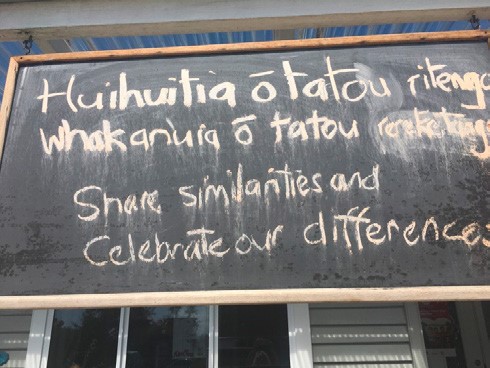 Huihuitia ō tatou ritenga
whakanuia ō tatou
Share similarities and
Celebrate our differences